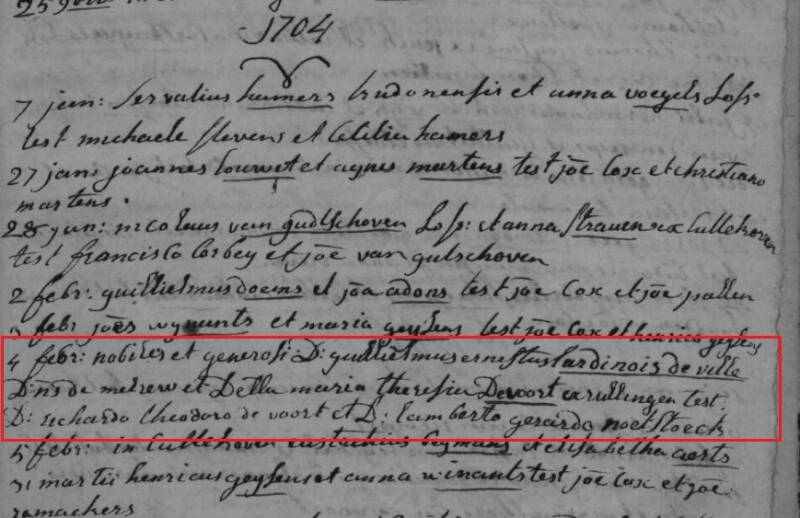 1704
7 jan: Servatius hamers trudonensis et anna voegels Loss:
test michaele stevens et Cecilia hamers
27 jan: joannes louwet et agnes martens test jõe Cox et christiano
martens.
28 jan: nicolaus van gudtschoven Loss: et anna Strauen ex Cuttehoven
test francisco Corbey et jõe van gutschoven
2 febr: guillielmus doems et jõa adons test jõe Cox et jõe pallen
3 febr joẽs wynants et maria geysens test jõe Cox et henrico geysens
4 febr: nobiles et generosi D: guillielmus ernestus sardinois de ville
Dñs de melrew et Della maria theresia Devoort ex rullingen test.
D: richardo theodoro de voort et D: lamberto gerardo noel Stoeck
5 febr: in Cuttehoven eustachius Ceymans et elisabetha aerts
31 martii henricus geysens et anna winants test jõe Cox et jõe
ramackers